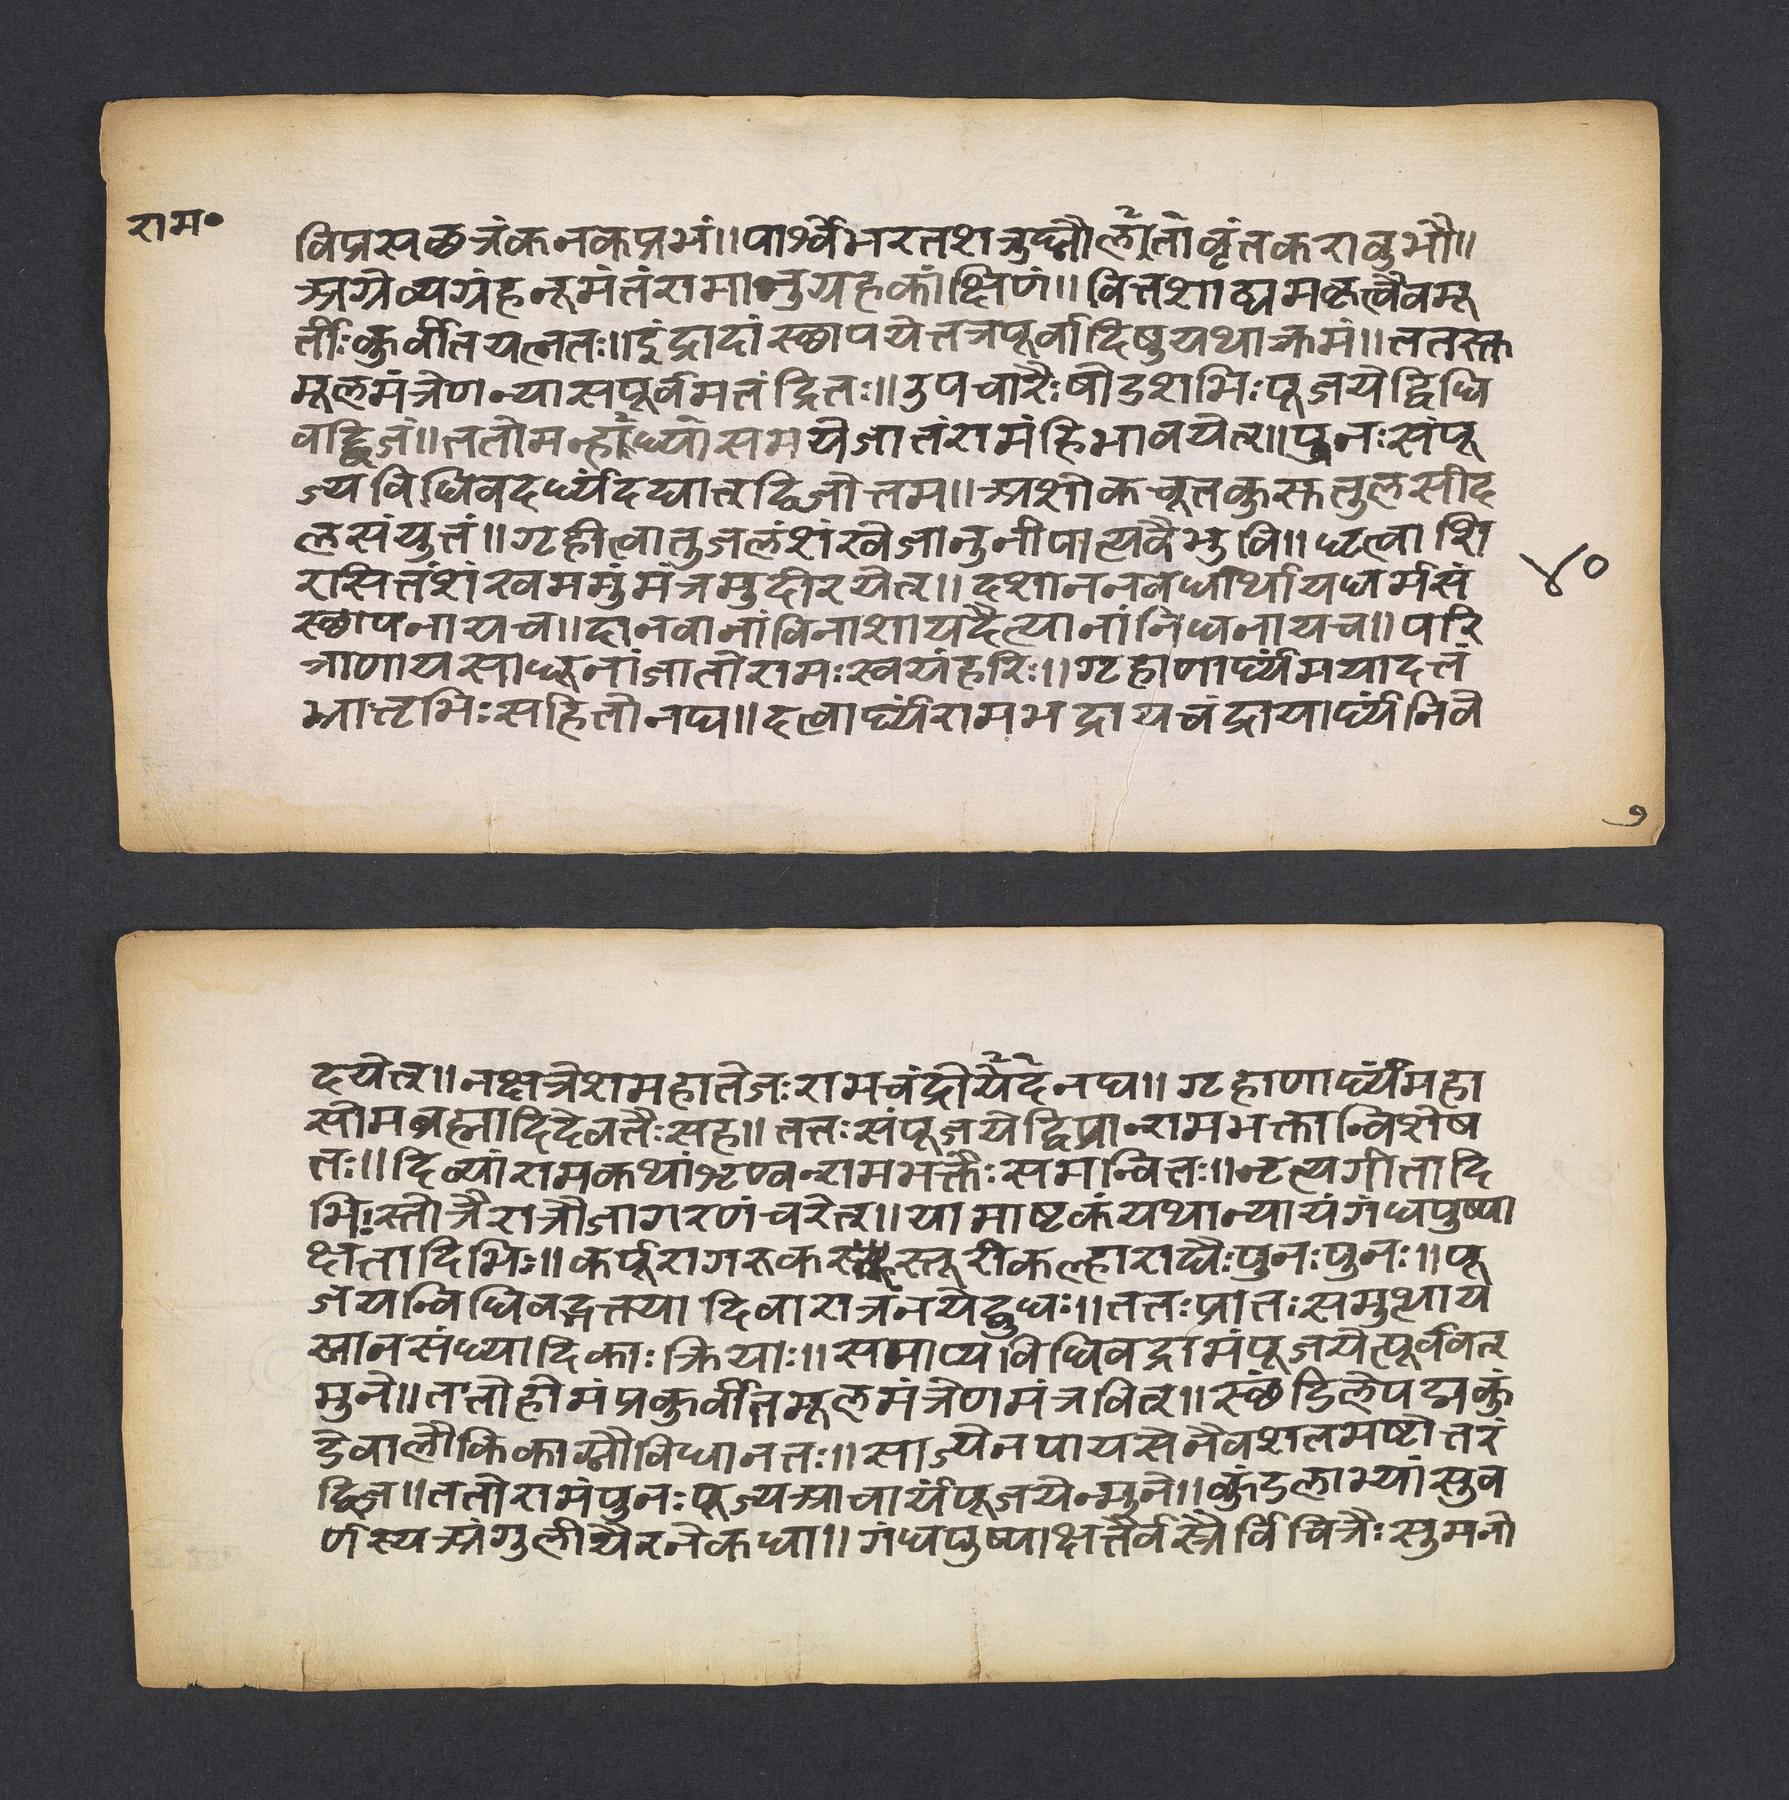 राम॰
विप्रसछत्रंकनकप्रभं॥पार्श्वेभरतशत्रुघ्नौलौंतांवृंतकरावुभौ॥
अग्रेव्यग्रंहनूमंतंरामानुग्रहकांक्षिणं॥वित्तशाठ्यमकृत्वैवमू
र्तीःकुर्वीतयत्नतः॥इंद्रादांस्छापयेत्तत्रपूर्वादिषुयथाक्रमं॥ततस्त
मूलमंत्रेणन्यासपूर्वमतंद्रितः॥उपचारैःषोडशभिःपूजयेद्विधि
वद्द्विजं॥ततोमन्हांध्यांसमयेजातंरामंहिभावयेत्॥पुनःसंपू
ज्यविधिवदर्घ्यंदद्यात्द्विजोत्तम॥अशोकचूतकुस्ततुलसीद
लसंयुतं॥गृहीत्वातुजलंशंखेजानुनीपात्यवैभुवि॥धृत्वाशि
रसितंशंखममुंमंत्रमुदीरयेत्॥दशाननवधार्थायधर्मसं
स्छापनायच॥दानवानांविनाशायदैत्यानांनिधनायच॥परि
त्राणायसाधूनांजातोरामःस्वयंहरिः॥गृहाणार्घ्यंमयादत्तं
भ्रातृभिःसहितोनघ॥दत्वार्घ्यंरामभद्रायचंद्रायार्घ्यंनिवे
४०
७
दयेत्॥नक्षत्रेशमहातेजःरामचंद्रोयदेनघ॥गृहाणार्घ्यंमहा
सोमब्रह्मादिदेवतैःसह॥ततःसंपूजयेद्विप्रान्रामभक्तान्विशेष
तः॥दिव्यांरामकथांशृण्वन्रामभक्तैःसमन्वितः॥नृत्यगीतादि
भिःस्तोत्रैरात्रौजागरणंचरेत्॥यामाष्टकंयथान्यायंगंधपुष्पा
क्षतादिभिः॥कर्पूरागरूकस्तूरीकल्हाराद्यैःपुनःपुनः॥पू
जयन्विधिवद्भत्तयादिवारात्रंनयेद्बुधः॥ततःप्रातःसमुत्थाय
स्नानसंध्यादिकाःक्रियाः॥समाप्यविधिवद्रामंपूजयेत्पूर्ववत्
मुने॥ततोहोमंप्रकुर्वीतमूलमंत्रेणमंत्रवित्॥स्छंडिलेपद्मकुं
डेवालौकिकाग्नौविधानतः॥साज्येनपायसेनैवशतमष्टोत्तरं
द्विज॥ततोरामंपुनःपूज्यआचार्यंपूजयेन्मुने॥कुंडलाभ्यांसुव
र्णस्यअंगुलीयैरनेकधा॥गंधपुष्पाक्षतैर्वस्त्रैर्विचित्रैःसुमनो